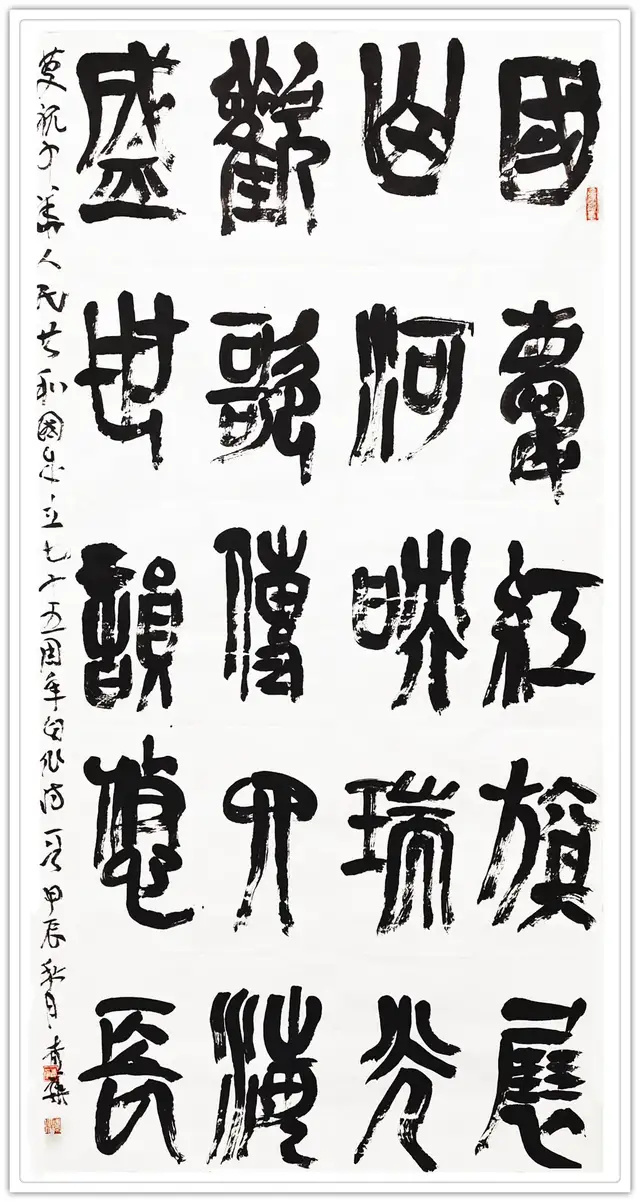 國慶紅旗展
山河映瑞光
歡歌傳四海
盛世韻悠長
慶祝中華人民共和國成立七十五周年自作詩一首甲辰秋月